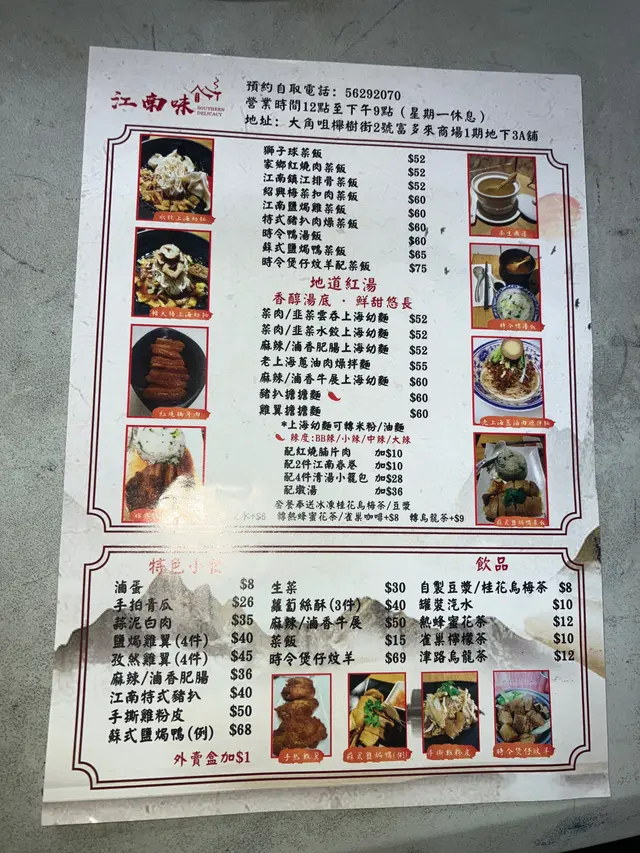 江南味
SOUTHERN
DELICACY
預約自取電話: 56292070
營業時間12點至下午9點 (星期一休息)
地址: 大角咀櫸樹街2號富多來商場1期地下3A舖
獅子球菜飯 $52
家鄉紅燒肉菜飯 $52
江南鎮江排骨菜飯 $52
紹興梅菜扣肉菜飯 $60
江南鹽焗雞菜飯 $60
特式豬扒肉燥菜飯 $60
時令鴨湯飯 $60
蘇式鹽焗鴨菜飯 $65
時令煲仔炆羊配菜飯 $75
地道紅湯
香醇湯底 · 鮮甜悠長
菜肉/韭菜雲吞上海幼麵 $52
菜肉/韭菜水餃上海幼麵 $52
麻辣/滷香肥腸上海幼麵 $52
老上海蔥油肉燥拌麵 $55
麻辣/滷香牛展上海幼麵 $60
豬扒擔擔麵 $60
雞翼擔擔麵 $60
*上海幼麵可轉米粉/油麵
辣度:BB辣/小辣/中辣/大辣
配紅燒腩片肉 加$10
配2件江南春卷 加$10
配4件清湯小籠包 加$28
配燉湯 加$36
套餐奉送冰凍桂花烏梅茶/豆漿
+$8 轉熱蜂蜜花茶/雀巢咖啡+$8 轉烏龍茶+$9
紅燒腩片肉
時令鴨湯飯
老上海蔥油肉燥拌麵
蘇式鹽焗鴨菜飯
特色小食
滷蛋 $8
手拍青瓜 $26
蒜泥白肉 $35
鹽焗雞翼 (4件) $40
孜然雞翼 (4件) $45
麻辣/滷香肥腸 $36
江南特式豬扒 $40
手撕雞粉皮 $50
蘇式鹽焗鴨(例) $68
外賣盒加$1
生菜 $30
蘿蔔絲酥(3件) $40
麻辣/滷香牛展 $50
菜飯 $15
時令煲仔炆羊 $69
飲品
自製豆漿/桂花烏梅茶 $8
罐裝汽水 $10
熱蜂蜜花茶 $12
雀巢檸檬茶 $10
津路烏龍茶 $12
孜然雞翼
蘇式鹽焗鴨(例)
手撕雞粉皮
時令煲仔炆羊